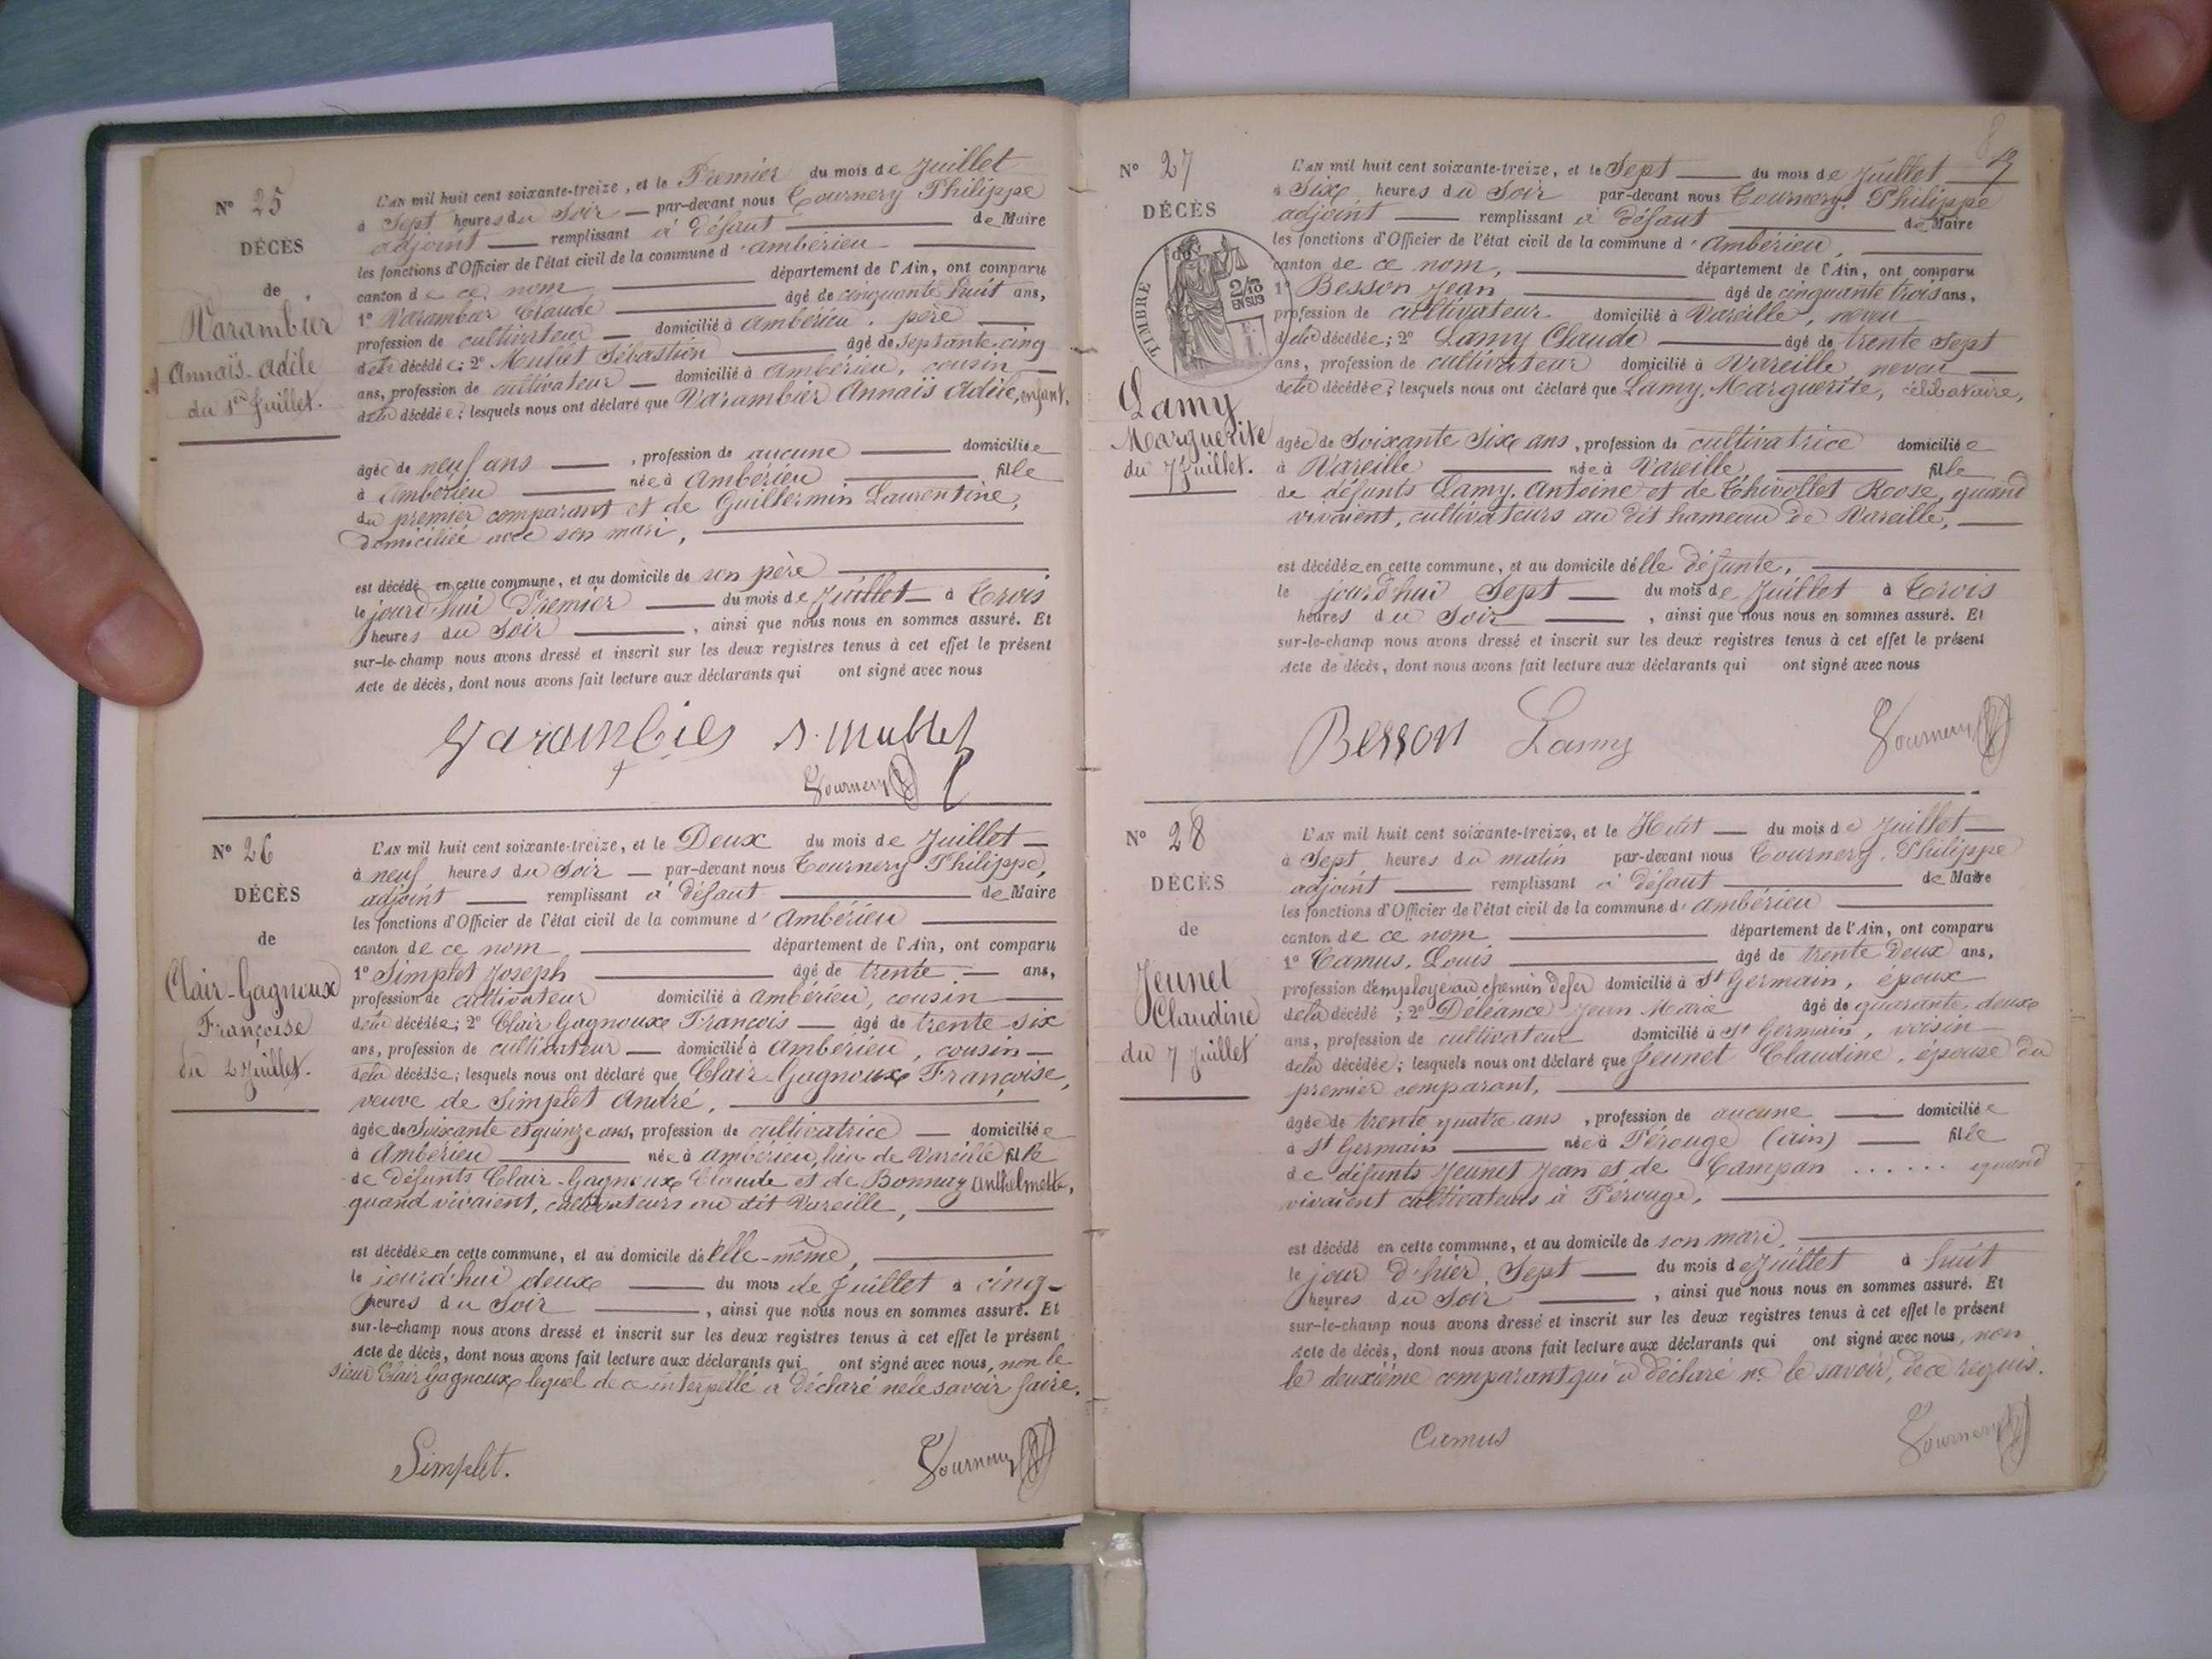 N° 25
DÉCÈS
de
Varambier
Annaïs-Adèle
du 1er Juillet.
L'AN mil huit cent soixante-treize, et le Premier du mois de Juillet
à Sept heures du Soir par-devant nous Tournery Philippe
adjoint remplissant à défaut de Maire
les fonctions d'Officier de l'état civil de la commune d'Ambérieu
canton de ce nom, département de l'Ain, ont comparu
1° Varambier Claude âgé de cinquante huit ans,
profession de cultivateur domicilié à Ambérieu, père
de la décédée; 2° Mublet Sébastien âgé de Septante-cinq
ans, profession de cultivateur domicilié à Ambérieu, cousin
de la décédée; lesquels nous ont déclaré que Varambier Annaïs Adèle, enfant,
âgée de neuf ans, profession de aucune domiciliée
à Ambérieu née à Ambérieu fille
du premier comparant et de Guillermin Laurentine,
domiciliée avec son mari,
est décédé en cette commune, et au domicile de son père
le jourd'hui Premier du mois de Juillet à Trois
heures du Soir, ainsi que nous nous en sommes assuré. Et
sur-le-champ nous avons dressé et inscrit sur les deux registres tenus à cet effet le présent
Acte de décès, dont nous avons fait lecture aux déclarants qui ont signé avec nous
Varambier S. Mublet
Tournery
N° 26
DÉCÈS
de
Clair-Gagnoux
Françoise
du 2 Juillet.
L'AN mil huit cent soixante-treize, et le Deux du mois de Juillet
à neuf heures du Soir par-devant nous Tournery Philippe,
adjoint remplissant à défaut de Maire
les fonctions d'Officier de l'état civil de la commune d'Ambérieu
canton de ce nom département de l'Ain, ont comparu
1° Simplet Joseph âgé de trente ans,
profession de cultivateur domicilié à Ambérieu, cousin
de la décédée; 2° Clair Gagnoux François âgé de trente-six
ans, profession de cultivateur domicilié à Ambérieu, cousin
de la décédée; lesquels nous ont déclaré que Clair-Gagnoux Françoise,
veuve de Simplet André,
âgée de Soixante et quinze ans, profession de cultivatrice domiciliée
à Ambérieu née à Ambérieu, lieu de Vareille fille
de défunts Clair-Gagnoux Claude et de Bonnaz Anthelmette,
quand vivaient, cultivateurs au dit Vareille,
est décédée en cette commune, et au domicile d'elle-même,
le jourd'hui deux du mois de Juillet à cinq
heures du Soir, ainsi que nous nous en sommes assuré. Et
sur-le-champ nous avons dressé et inscrit sur les deux registres tenus à cet effet le présent
Acte de décès, dont nous avons fait lecture aux déclarants qui ont signé avec nous, non le
sieur Clair Gagnoux lequel de ce interpellé a déclaré ne le savoir faire.
Simplet.
Tournery
N° 27
DÉCÈS
de
TIMBRE
2/10
EN SUS
Lamy
Marguerite
du 7 Juillet.
L'AN mil huit cent soixante-treize, et le Sept du mois de Juillet
à Six heures du Soir par-devant nous Tournery, Philippe
adjoint remplissant à défaut de Maire
les fonctions d'Officier de l'état civil de la commune d'Ambérieu,
canton de ce nom, département de l'Ain, ont comparu
1° Besson Jean âgé de cinquante trois ans,
profession de cultivateur domicilié à Vareille, neveu
de la décédée; 2° Lamy Claude âgé de trente sept
ans, profession de cultivateur domicilié à Vareille neveu
de la décédée; lesquels nous ont déclaré que Lamy, Marguerite, célibataire,
âgée de Soixante Six ans, profession de cultivatrice domiciliée
à Vareille née à Vareille fille
de défunts Lamy, Antoine et de Thivollet Rose, quand
vivaient, cultivateurs au dit hameau de Vareille,
est décédée en cette commune, et au domicile d'elle défunte,
le jourd'hui Sept du mois de Juillet à Trois
heures du Soir, ainsi que nous nous en sommes assuré. Et
sur-le-champ nous avons dressé et inscrit sur les deux registres tenus à cet effet le présent
Acte de décès, dont nous avons fait lecture aux déclarants qui ont signé avec nous
Besson Lamy Tournery
N° 28
DÉCÈS
de
Jeunet
Claudine
du 7 Juillet
L'AN mil huit cent soixante-treize, et le Huit du mois de Juillet
à Sept heures du matin par-devant nous Tournery, Philippe
adjoint remplissant à défaut de Maire
les fonctions d'Officier de l'état civil de la commune d'Ambérieu
canton de ce nom département de l'Ain, ont comparu
1° Camus, Louis âgé de trente Deux ans,
profession d'employé au chemin de fer domicilié à St Germain, époux
de la décédé; 2° Déléance Jean Marie âgé de quarante-deux
ans, profession de cultivateur domicilié à St Germain, voisin
de la décédée; lesquels nous ont déclaré que Jeunet Claudine, épouse du
premier comparant,
âgée de trente quatre ans, profession de aucune domiciliée
à St Germain née à Pérouge (Ain) fille
de défunts Jeunet Jean et de Campan ...... quand
vivaient cultivateurs à Pérouge,
est décédé en cette commune, et au domicile de son mari,
le jour d'hier, Sept du mois de Juillet à huit
heures du Soir, ainsi que nous nous en sommes assuré. Et
sur-le-champ nous avons dressé et inscrit sur les deux registres tenus à cet effet le présent
Acte de décès, dont nous avons fait lecture aux déclarants qui ont signé avec nous, non
le deuxième comparant qui a déclaré ne le savoir, de ce requis.
Camus Tournery